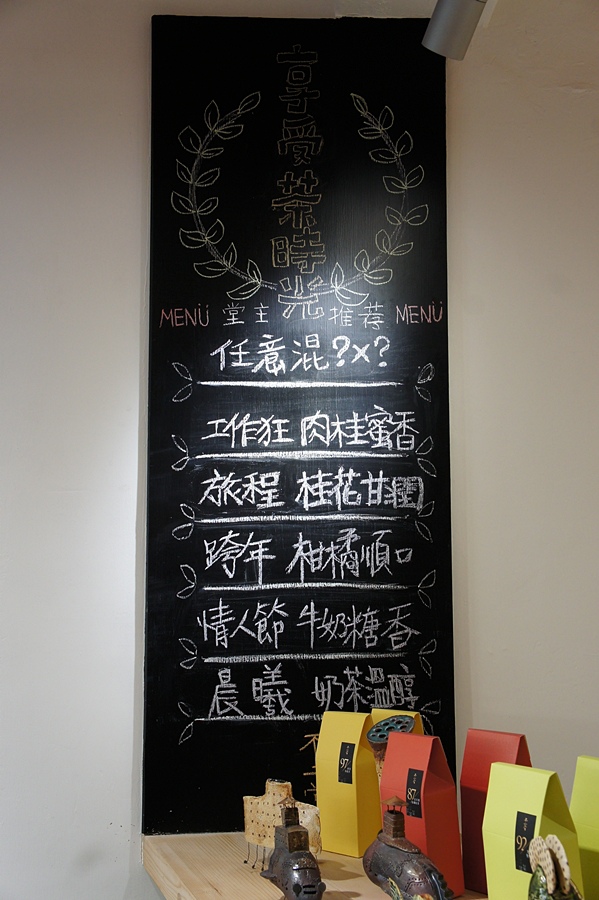 享受茶時光
MENÜ 堂主 推荐 MENÜ
任意混?x?
工作狂 肉桂蜜香
旅程 桂花甘
跨年 柑橘順口
情人節 牛奶糖香
晨曦 奶茶溫醇
97
87
92